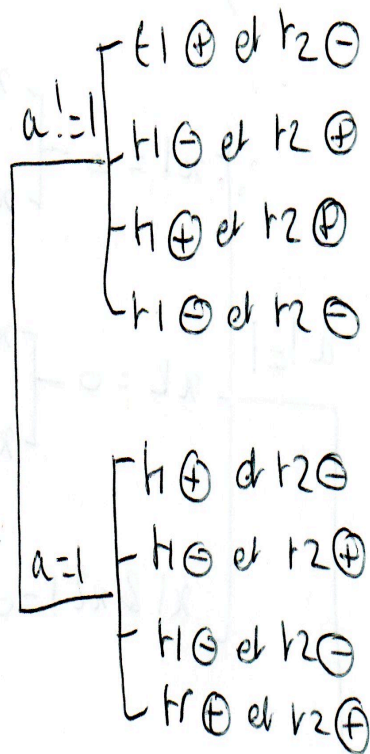 r1 ⊕ et r2 ⊖
a!=1
r1 ⊖ et r2 ⊕
r1 ⊕ et r2 ⊕
r1 ⊖ et r2 ⊖
r1 ⊕ et r2 ⊖
a=1
r1 ⊖ et r2 ⊕
r1 ⊖ et r2 ⊖
r1 ⊕ et r2 ⊕